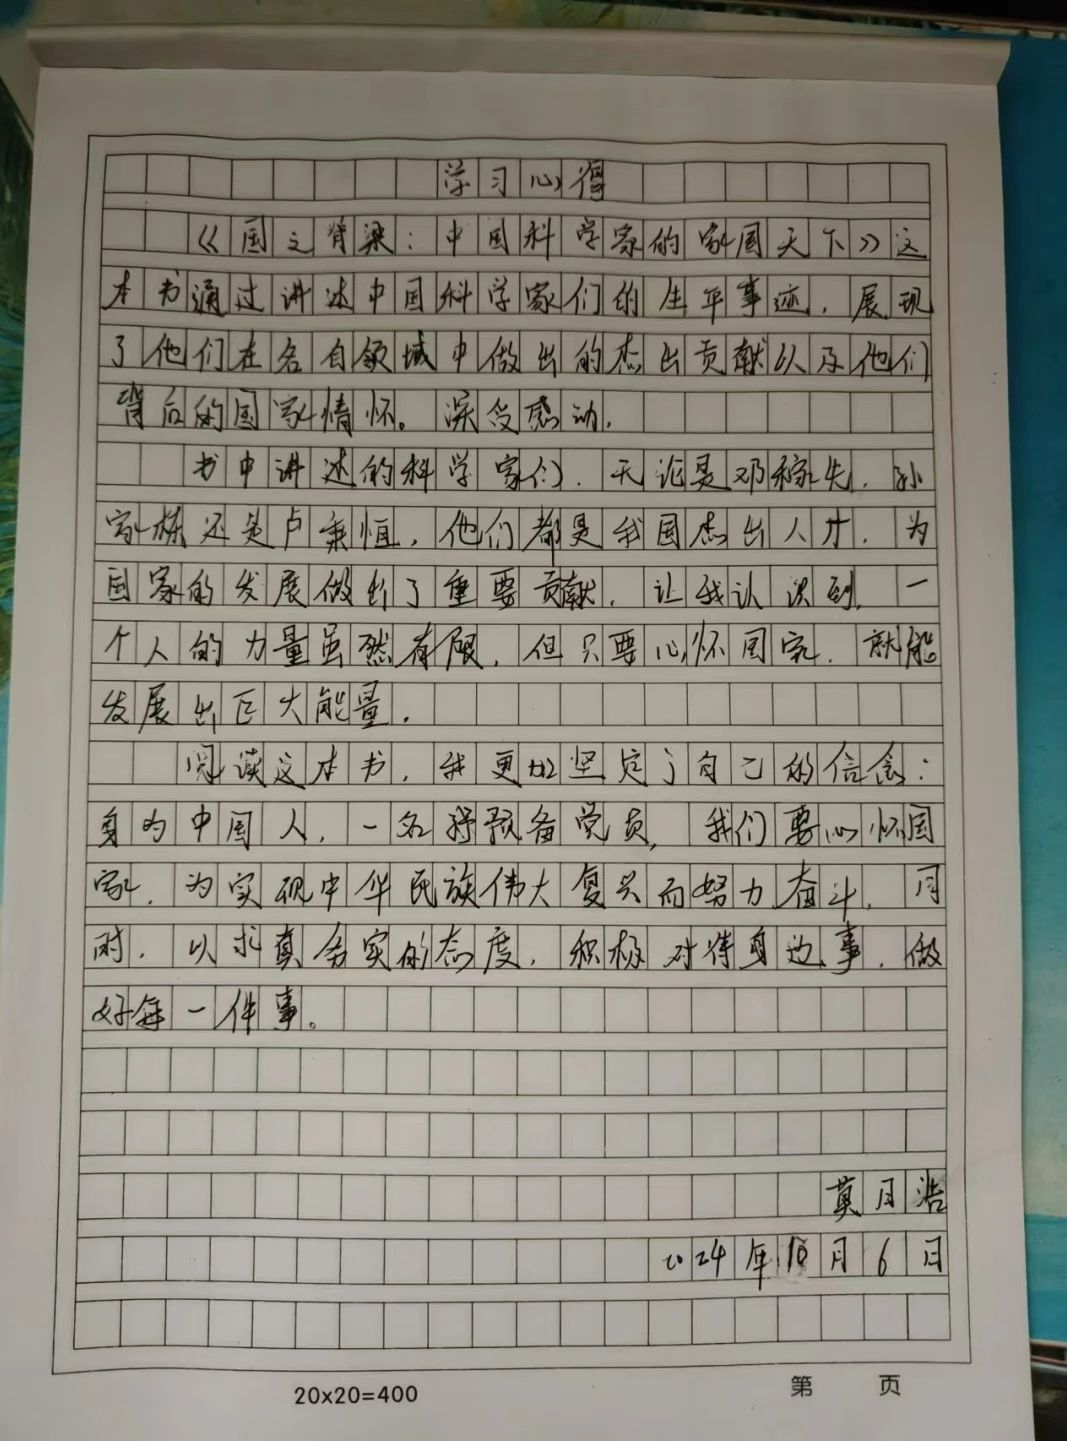 学习心得
《国之脊梁：中国科学家的家国天下》这
本书通过讲述中国科学家们的生平事迹，展现
了他们在各自领域中做出的杰出贡献以及他们
背后的国家情怀。深受感动，
书中讲述的科学家们，无论是邓稼先，孙
家栋还是卢秉恒，他们都是我国杰出人才，为
国家的发展做出了重要贡献，让我认识到，一
个人的力量虽然有限，但只要心怀国家，就能
发展出巨大能量，
阅读这本书，我更加坚定了自己的信念：
身为中国人，一名预备党员，我们要心怀国
家，为实现中华民族伟大复兴而努力奋斗，同
时，以求真务实的态度，积极对待身边事，做
好每一件事。
莫月浩
2024年10月6日
20x20=400
第 页